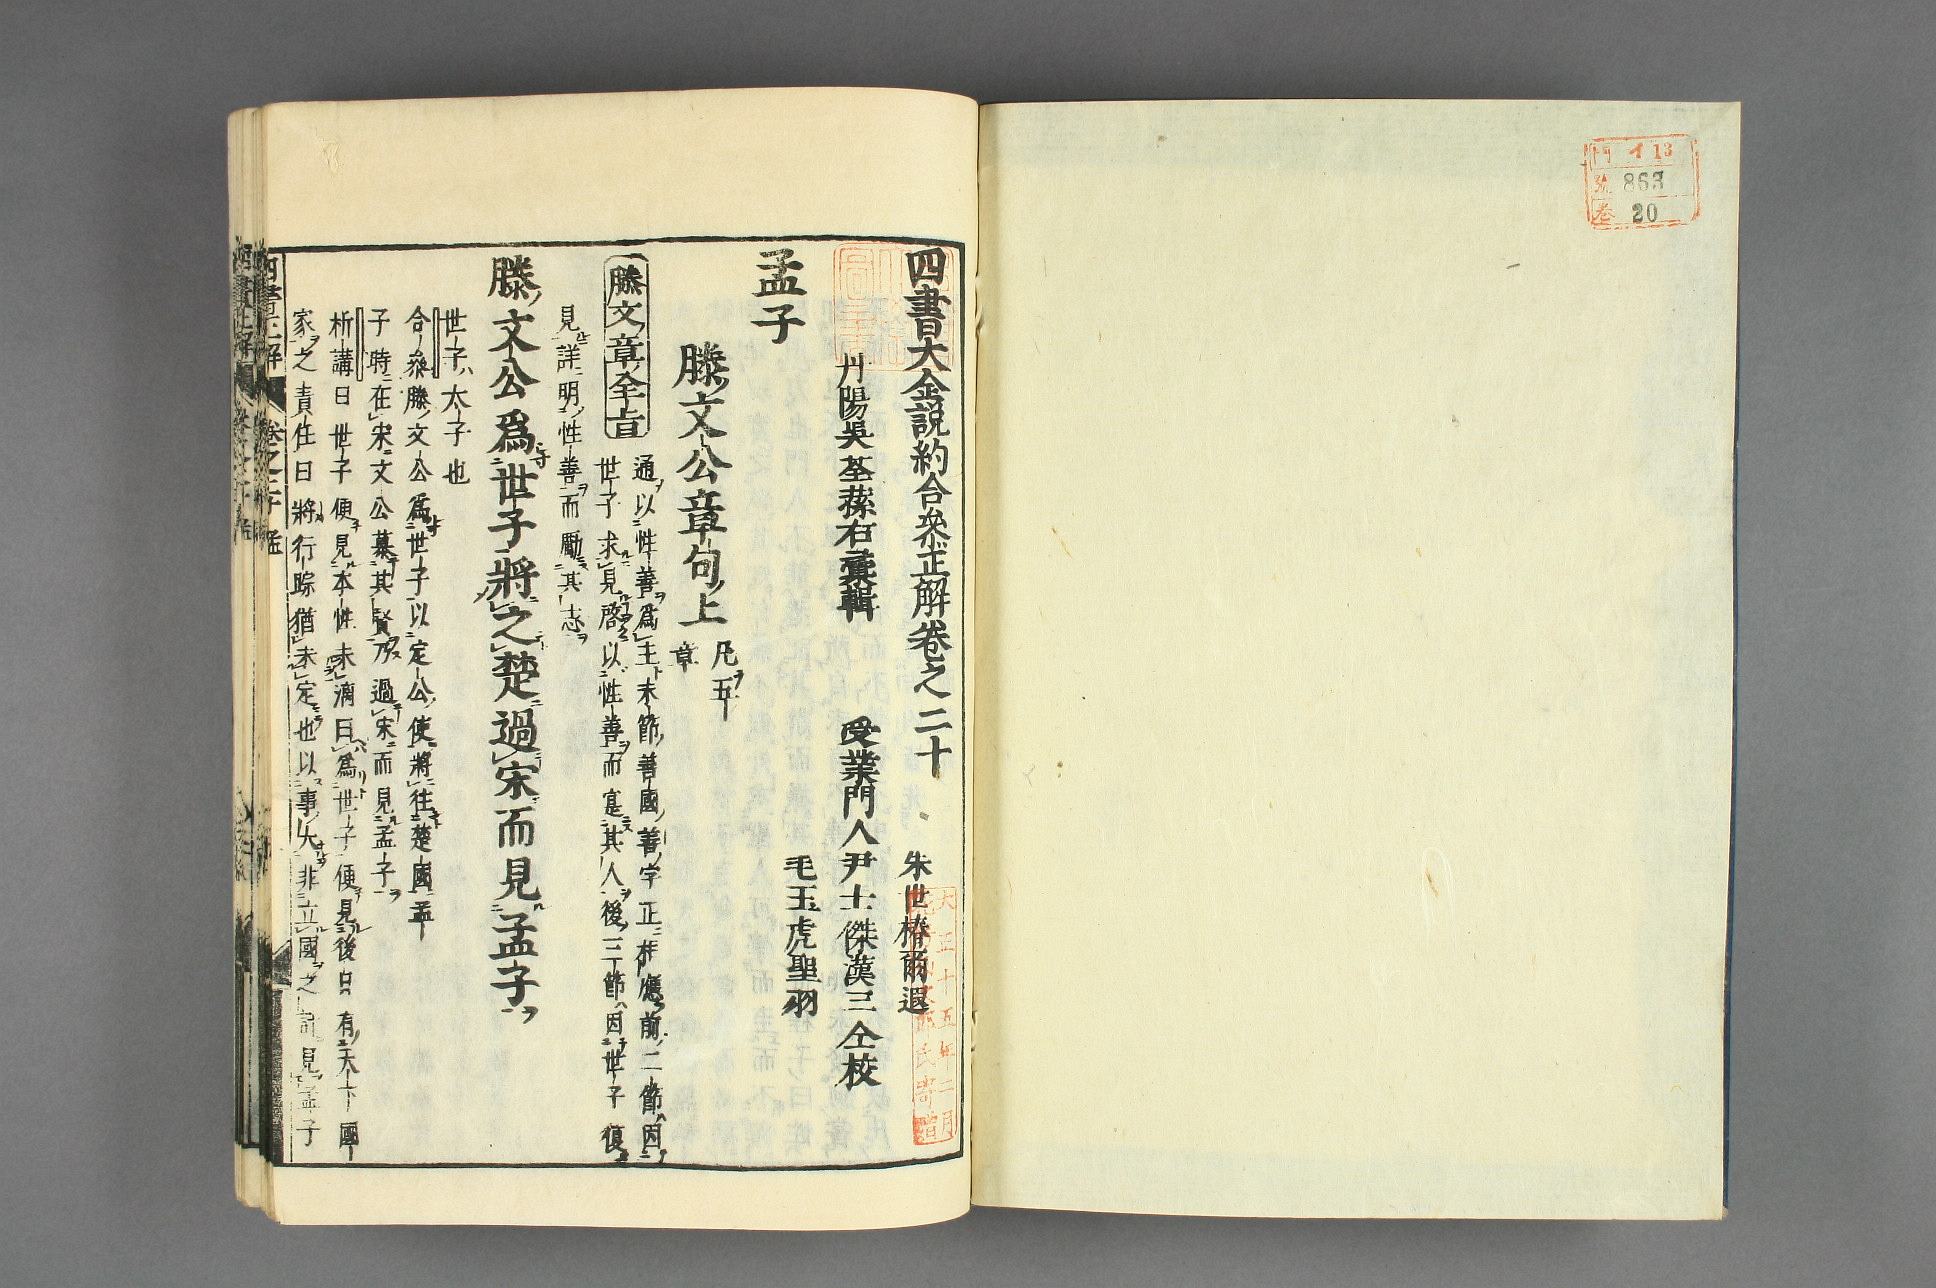 門 イ 13
號 863
巻 20
四書大全説約合參正解卷之二十
朱世椿爾遐
丹陽吳荃蓀右彙輯 受業門人尹士傑漢三仝校
毛玉虎聖羽
孟子
滕文公章句上 凡五章
滕文章全旨
通以性善爲主末節善國善字正相應前二節因
世子求見啓以性善而寔其人後三節因世子復
見詳明性善而勵其志
滕文公爲世子將之楚過宋而見孟子
世子太子也
合參滕文公爲世子以定公使將往楚國孟
子時在宋文公慕其賢乃過宋而見孟子
析講曰世子便見本性未漓曰爲世子便見後日有天下國
家之責任曰將行踪猶未定也以事大非立國之 見孟子
大正十五年二月
氏寄贈
四書正解 卷之二十 孟